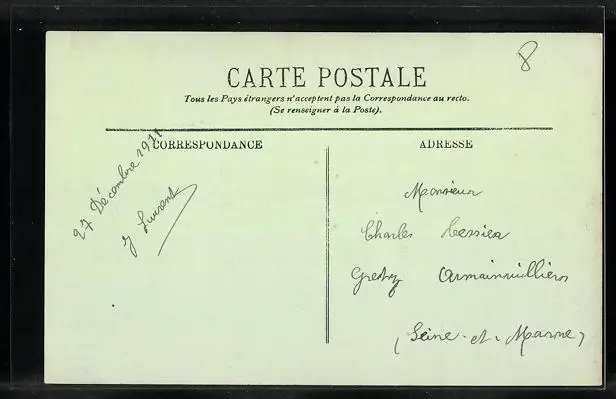 8
CARTE POSTALE
Tous les Pays étrangers n'acceptent pas la Correspondance au recto.
(Se renseigner à la Poste).
CORRESPONDANCE
27 Décembre 1911
J Laurent
ADRESSE
Monsieur
Charles Tessier
Gretz Armainvilliers
(Seine-et-Marne)